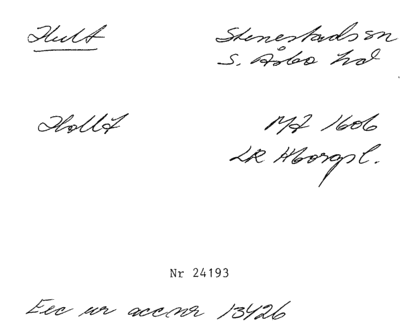 Hult Stenestads sn
S. Åsbo hd
Hollt MJ 1606
LR Hborgsl.
Nr 24193
Exc ur acc.nr 13426